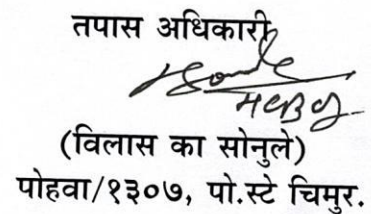 तपास अधिकारी
(विलास का सोनुले)
पोहवा/१३०७, पो.स्टे चिमुर.